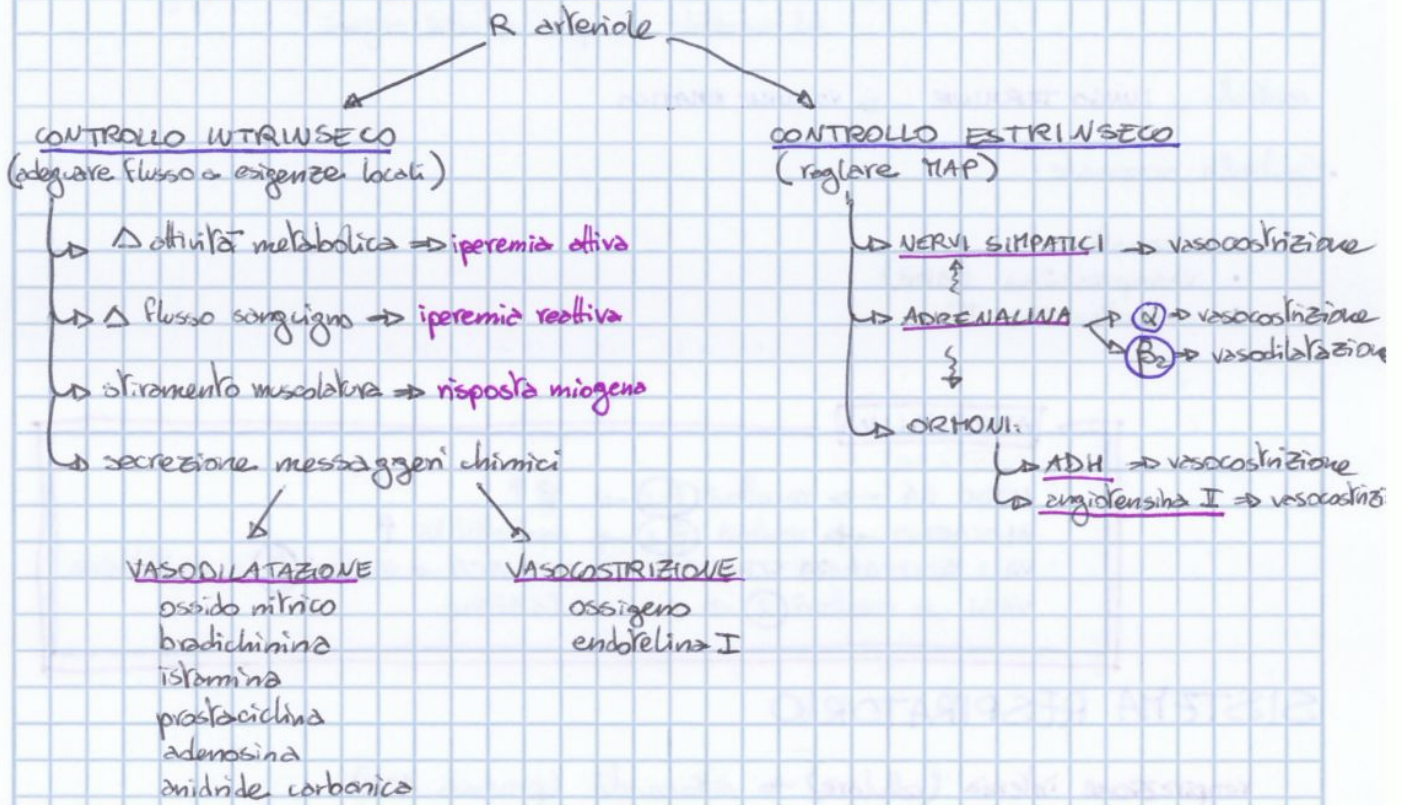 R arteriole
CONTROLLO INTRINSECO
(adeguare flusso a esigenze locali)
Δ attività metabolica ⇒ iperemia attiva
Δ flusso sanguigno ⇒ iperemia reattiva
stiramento muscolatura ⇒ risposta miogena
secrezione messaggeri chimici
VASODILATAZIONE
ossido nitrico
bradichinina
istamina
prostaciclina
adenosina
anidride carbonica
VASOCOSTRIZIONE
ossigeno
endotelina I
CONTROLLO ESTRINSECO
(reglare MAP)
NERVI SIMPATICI → vasocostrizione
ADRENALINA
α → vasocostrizione
β2 → vasodilatazione
ORMONI:
ADH ⇒ vasocostrizione
angiotensina I ⇒ vasocostrizi